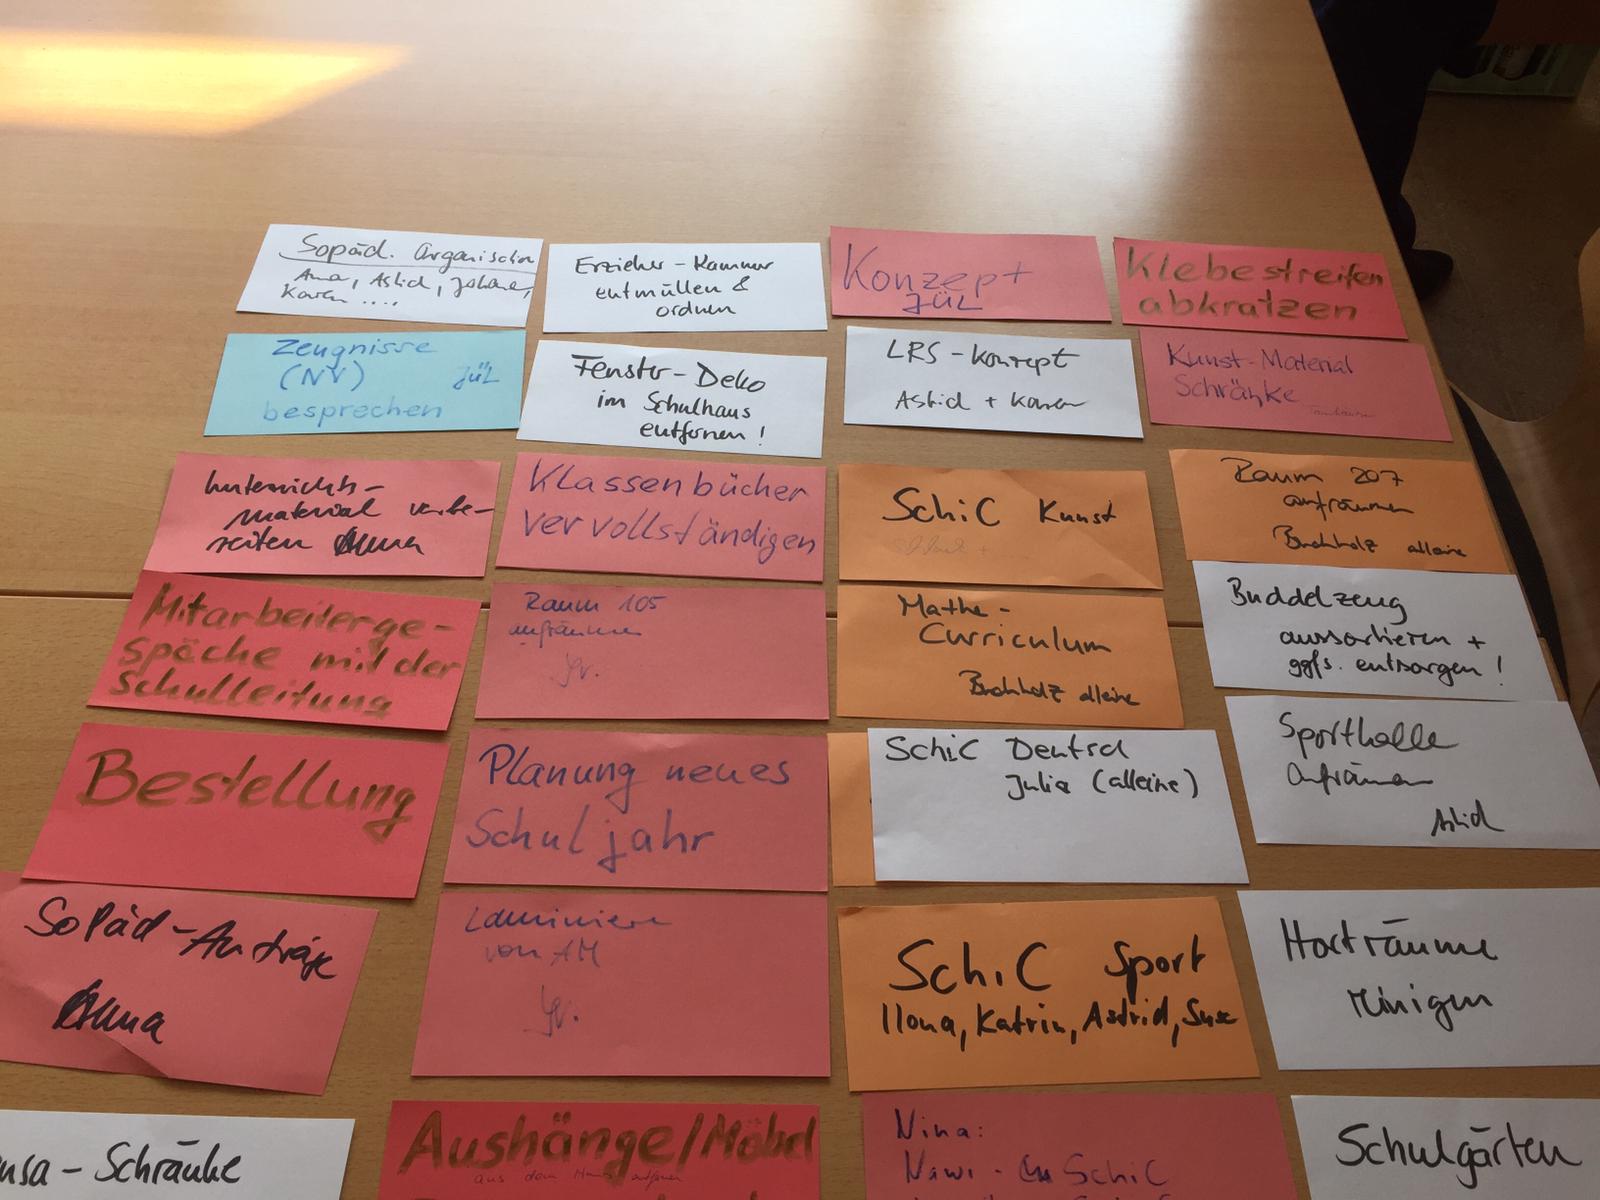 Sopäd. Organisation
Anna, Astid, Johanne,
Karen ....
Erzieher-Kammer
entmüllen &
ordnen
Konzept
JÜL
Klebestreifen
abkratzen
Zeugnisse
(NV) JüL
besprechen
Fenster-Deko
im Schulhaus
entfernen!
LRS-Konzept
Astrid + Karen
Kunst-Material
Schränke
Unterrichts-
material vorbe-
reiten Anna
Klassenbücher
vervollständigen
SchiC Kunst
Raum 207
aufräumen
Buchholz alleine
Mitarbeiterge-
späche mit der
Schulleitung
Raum 105
aufräumen
Mathe-
Curriculum
Buchholz alleine
Buddelzeug
aussortieren +
ggfs. entsorgen!
Bestellung
Planung neues
Schuljahr
SchiC Deutsch
Julia (alleine)
Sporthalle
aufräumen
Astrid
SoPäd-Anträge
Anna
Laminieren
von AM
SchiC Sport
Ilona, Katrin, Astrid, Suse
Horträume
reinigen
nsa-Schränke
Aushänge/Möbel
aus dem Haus entfernen
Nina:
Nawi - SchiC
Schulgärten